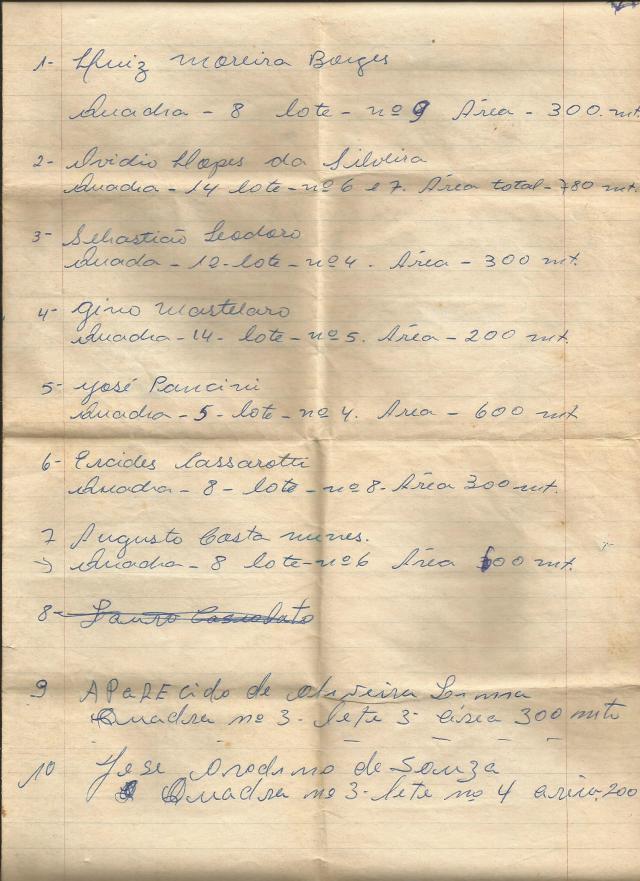 1- Luiz Moreira Borges
Quadra - 8 lote - nº 9 Área - 300. mt.
2- Ovidio Lopes da Silveira
Quadra - 14 lote - nº 6 e 7. Área total - 780 mt.
3- Sebastião Leodoro
Quada - 12 - lote - nº 4. Área - 300 mt.
4- Gino Mastelaro
Quadra - 14 - lote - nº 5. Área - 200 mt.
5- José Pancini
Quadra - 5 - lote - nº 4. Área - 600 mt
6- Ercides Cassarotti
Quadra - 8 - lote - nº 8 - Área 300 mt.
7 Augusto Costa nunes.
Quadra - 8 lote - nº 6 Área 600 mt.
8- Lauro
9 APaREcido de oliveira Lima
Quadra nº 3 - lete 3 - área 300 mts
10 Jose de Souza
Quadra nº 3 - lete nº 4 area. 200